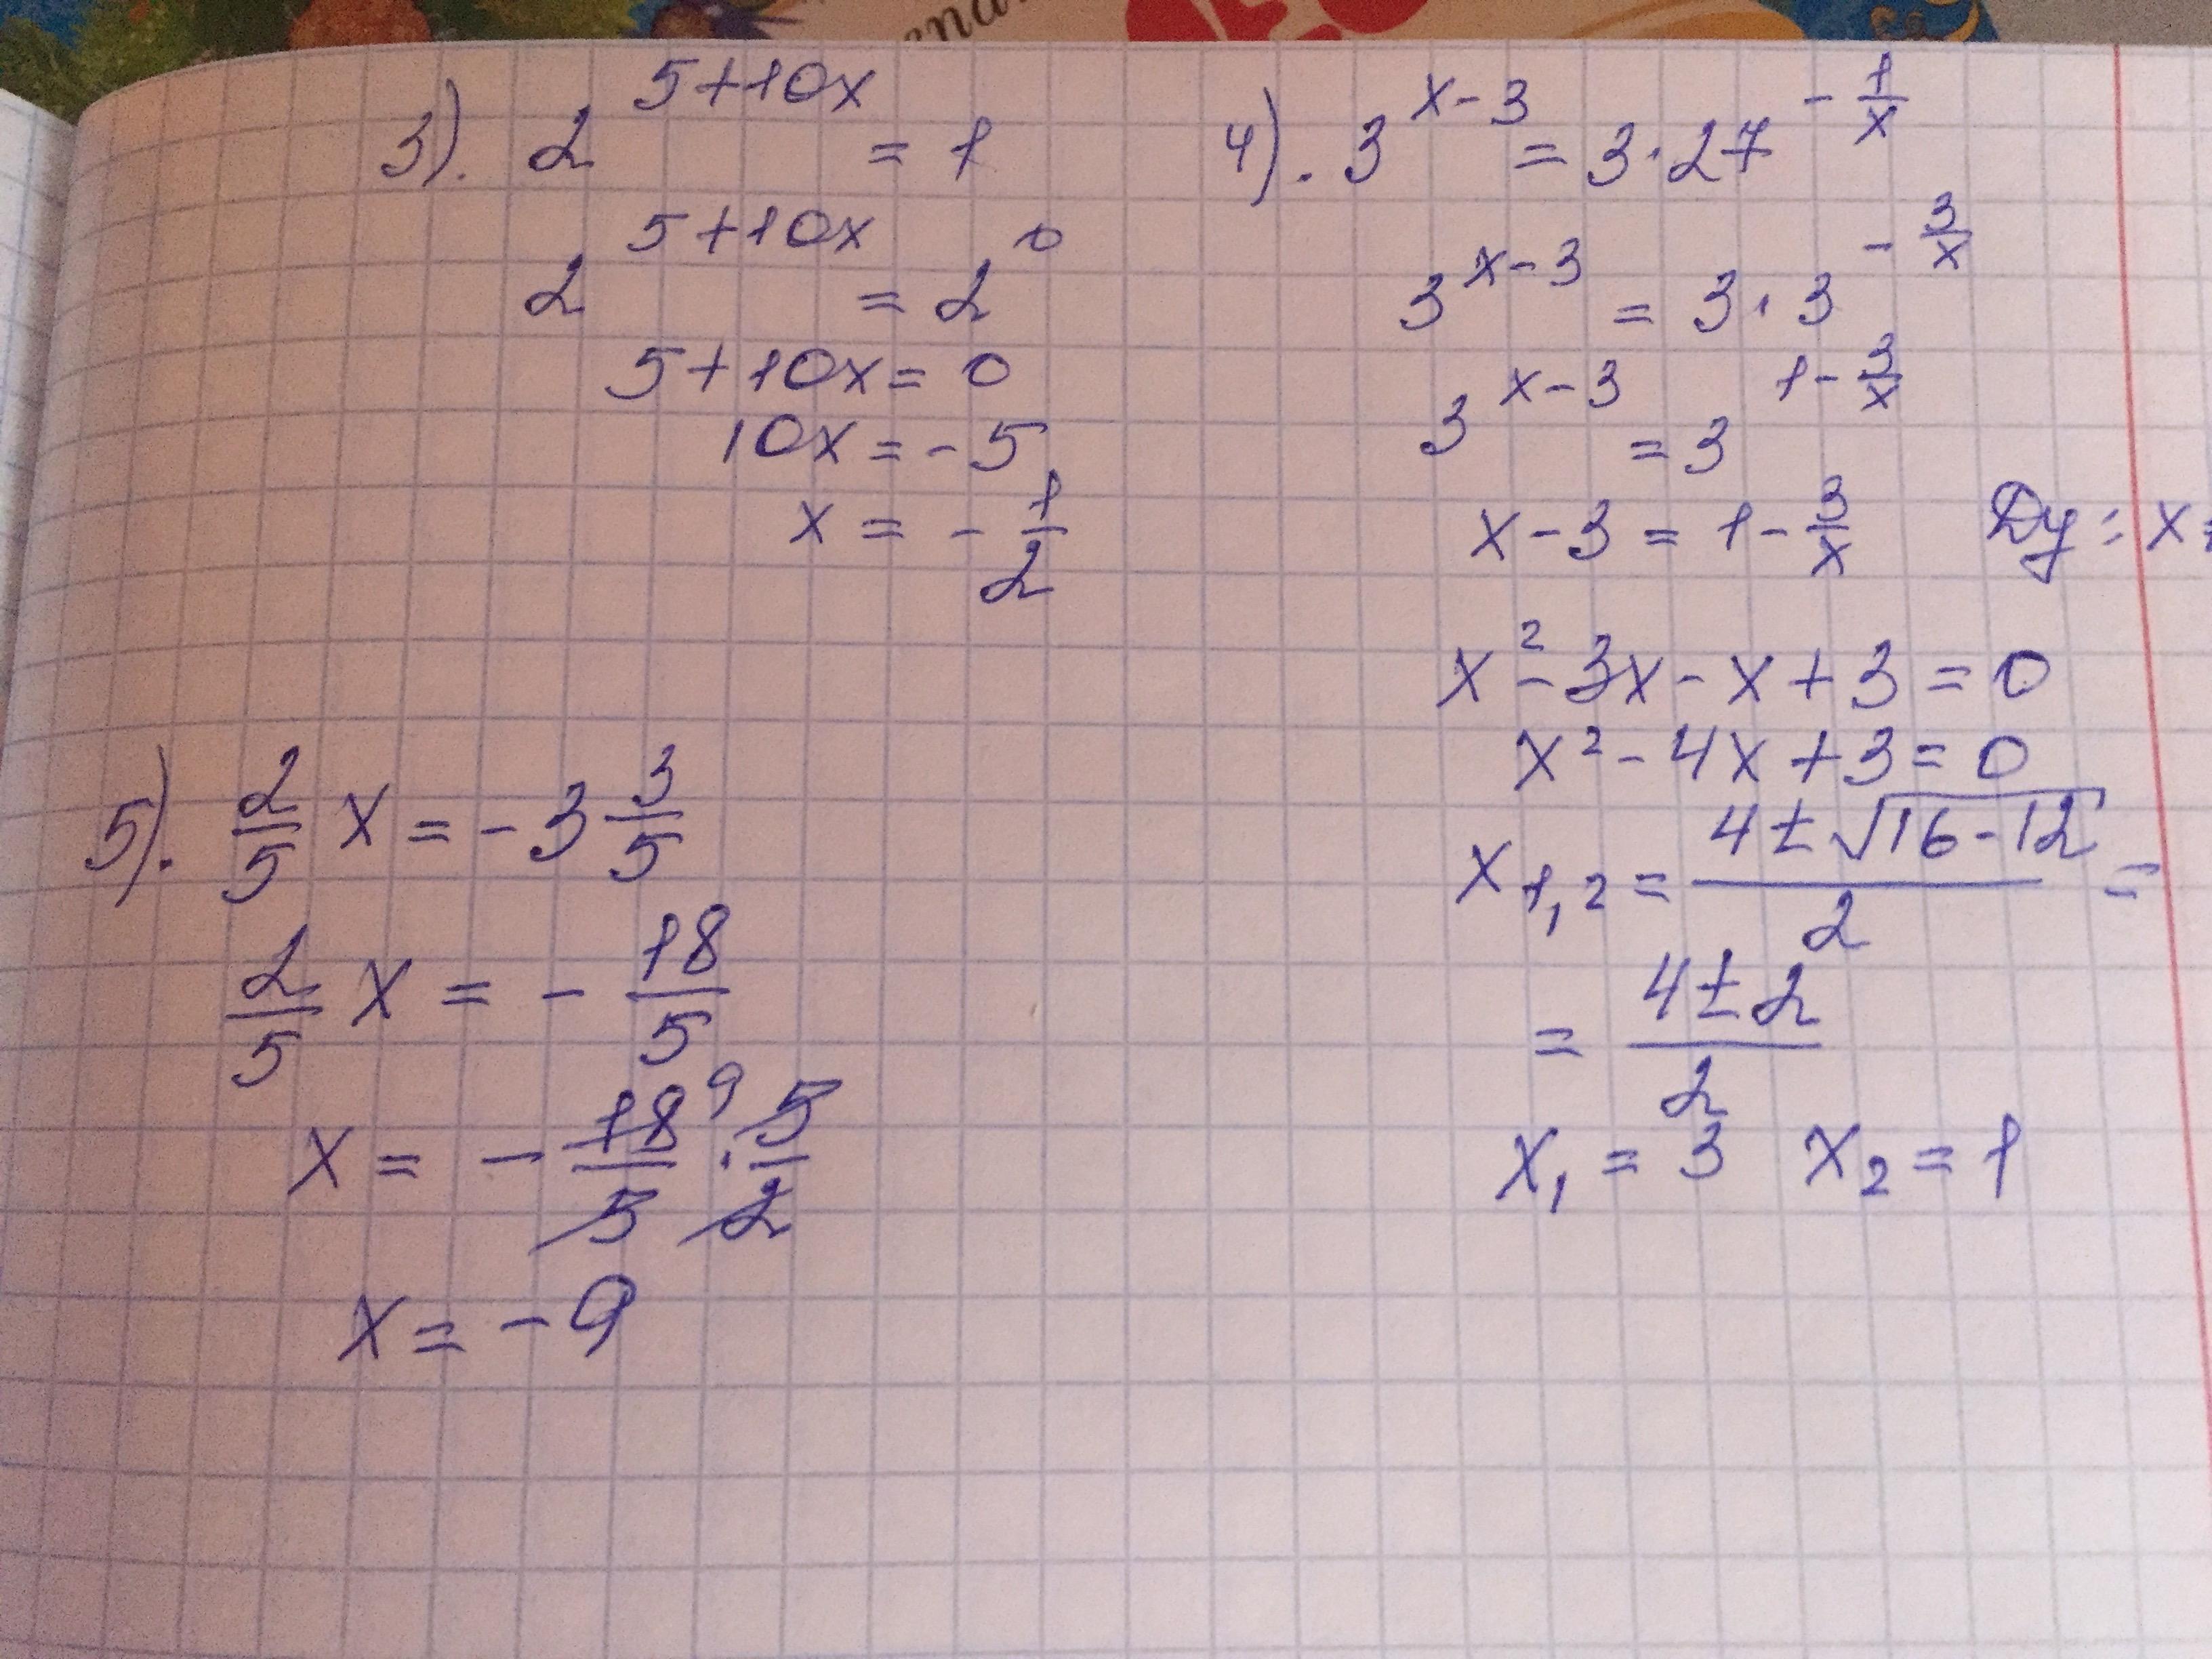 3). 2^{5+10x} = 1
2^{5+10x} = 2^0
5+10x = 0
10x = -5
x = -\frac{1}{2}
4). 3^{x-3} = 3·27^{-\frac{1}{x}}
3^{x-3} = 3·3^{-\frac{3}{x}}
3^{x-3} = 3^{1-\frac{3}{x}}
x-3 = 1-\frac{3}{x} Dy: x
x^2-3x-x+3=0
x^2-4x+3=0
x_{1,2} = \frac{4±\sqrt{16-12}}{2} =
= \frac{4±2}{2}
x_1 = 3 x_2 = 1
5). \frac{2}{5} x = -3\frac{3}{5}
\frac{2}{5} x = -\frac{18}{5}
x = -\frac{18}{5}^9·\frac{5}{2}
x = -9